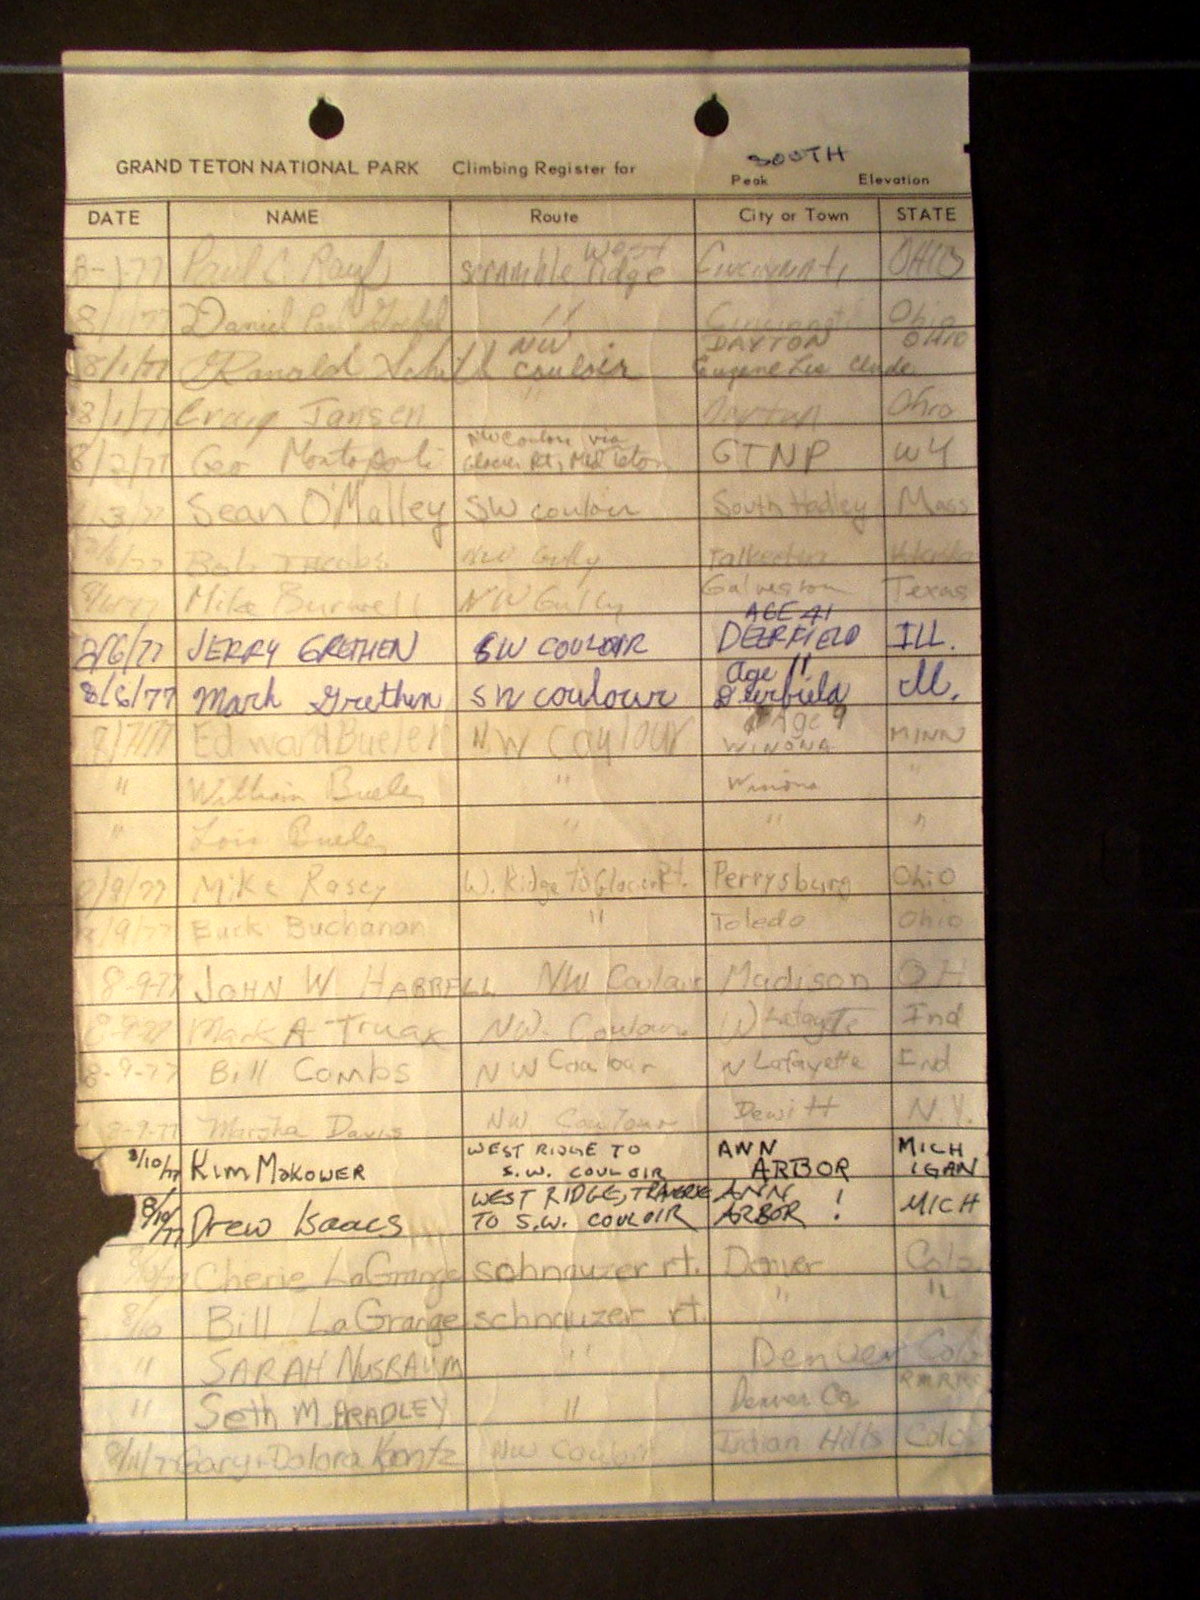 SOUTH
GRAND TETON NATIONAL PARK Climbing Register for
Peak Elevation
DATE NAME Route City or Town STATE
8-1-77 Paul C. West
scramble ridge Cincinnati OHIO
8/1/77 Daniel Paul " Cincinnati Ohio
NW DAYTON OHIO
8/1/77 Ranald couloir Eugene Lee Clyde
8/1/77 Craig Jansen " Dayton Ohio
8/2/77 Geo NW Couloir via
Glacier Rt, Mid Teton GTNP WY
8/3/77 Sean O'Malley SW couloir South Hadley Mass
8/6/77 Bob Jacobs NW Gully Talkeetna
8/6/77 Mike Burwell NW Gully Galveston Texas
AGE 41
8/6/77 JERRY GRETHEN SW COULOIR DEERFIELD ILL.
Age 11
8/6/77 Mark Grethen SW coulour Deerfield Ill.
Age 9
8/7/77 Edward Bueler NW Coulour WINONA MINN
" William Bueler " Winona "
" Lois Bueler " " "
8/9/77 Mike Rosey W. Ridge To Glacier Rt. Perrysburg Ohio
8/9/77 Buck Buchanan " Toledo Ohio
8-9-77 JOHN W HARRELL NW Coulair Madison OH
8-9-77 Mark A Truax NW. Coulour W Lafayette Ind
8-9-77 Bill Combs NW Coulour W Lafayette Ind
8-9-77 Marsha Davis NW Coulour Dewitt N.Y.
8/10/77 KIM MAKOWER WEST RIDGE TO
S.W. COULOIR ANN
ARBOR MICH
IGAN
8/10/77 Drew Isaacs WEST RIDGE, TRAVERSE
TO S.W. COULOIR ANN
ARBOR ! MICH
8/10/77 Cherie LaGrange schnauzer rt. Denver Colo
8/10 Bill LaGrange schnauzer rt. " "
" SARAH NUSBAUM " Denver Colo
" Seth M BRADLEY " Denver Co
8/11/77 Gary + Dalora Kontz NW Couloir Indian Hills Colo